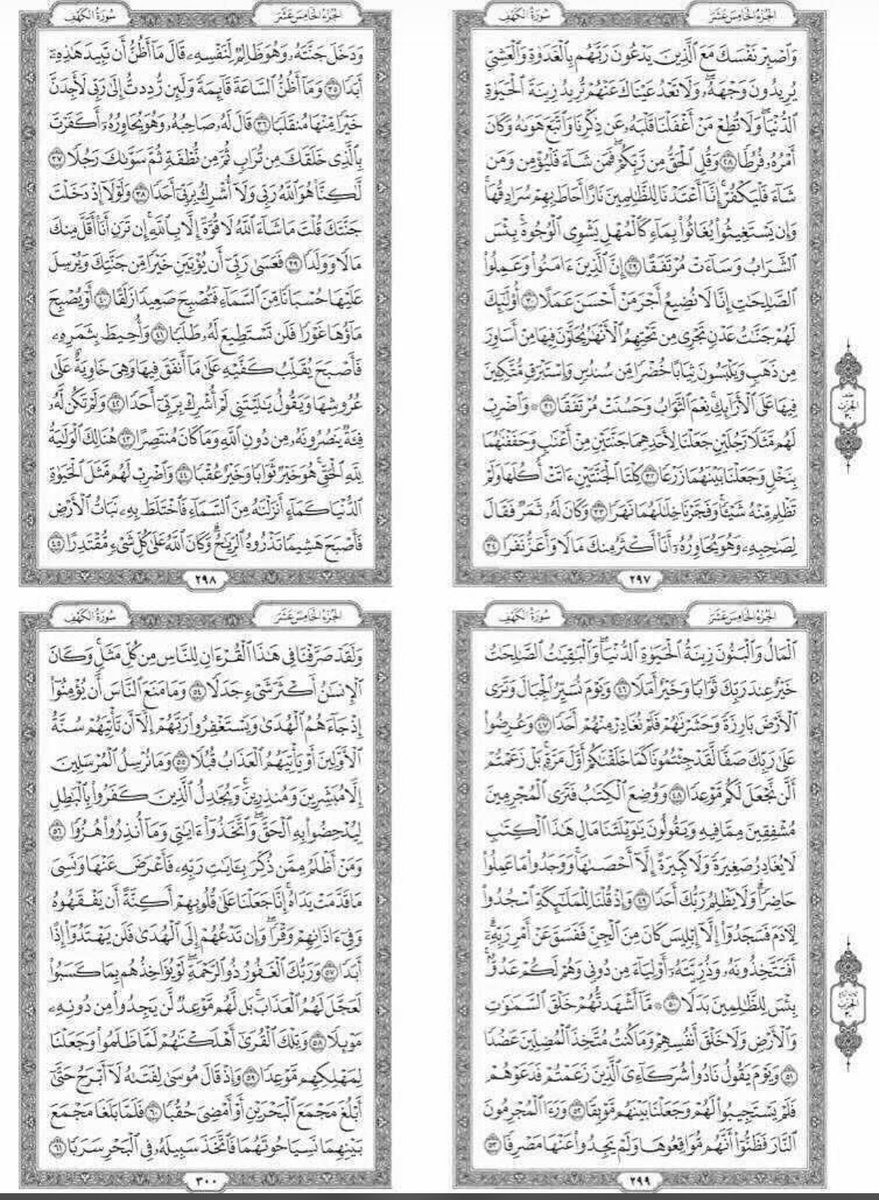 الجُزْءُ الخَامِسَ عَشَرَ
سُورَةُ الكَهْفِ
وَٱصْبِرْ نَفْسَكَ مَعَ ٱلَّذِينَ يَدْعُونَ رَبَّهُم بِٱلْغَدَوٰةِ وَٱلْعَشِىِّ
يُرِيدُونَ وَجْهَهُۥ ۖ وَلَا تَعْدُ عَيْنَاكَ عَنْهُمْ تُرِيدُ زِينَةَ ٱلْحَيَوٰةِ
ٱلدُّنْيَا ۖ وَلَا تُطِعْ مَنْ أَغْفَلْنَا قَلْبَهُۥ عَن ذِكْرِنَا وَٱتَّبَعَ هَوَىٰهُ وَكَانَ
أَمْرُهُۥ فُرُطًا ٢٨ وَقُلِ ٱلْحَقُّ مِن رَّبِّكُمْ ۖ فَمَن شَآءَ فَلْيُؤْمِن وَمَن
شَآءَ فَلْيَكْفُرْ ۚ إِنَّآ أَعْتَدْنَا لِلظَّٰلِمِينَ نَارًا أَحَاطَ بِهِمْ سُرَادِقُهَا ۚ
وَإِن يَسْتَغِيثُوا۟ يُغَاثُوا۟ بِمَآءٍ كَٱلْمُهْلِ يَشْوِى ٱلْوُجُوهَ ۚ بِئْسَ
ٱلشَّرَابُ وَسَآءَتْ مُرْتَفَقًا ٢٩ إِنَّ ٱلَّذِينَ ءَامَنُوا۟ وَعَمِلُوا۟
ٱلصَّٰلِحَٰتِ إِنَّا لَا نُضِيعُ أَجْرَ مَنْ أَحْسَنَ عَمَلًا ٣٠ أُو۟لَٰٓئِكَ
لَهُمْ جَنَّٰتُ عَدْنٍ تَجْرِى مِن تَحْتِهِمُ ٱلْأَنْهَٰرُ يُحَلَّوْنَ فِيهَا مِنْ أَسَاوِرَ
مِن ذَهَبٍ وَيَلْبَسُونَ ثِيَابًا خُضْرًا مِّن سُندُسٍ وَإِسْتَبْرَقٍ مُّتَّكِـِٔينَ
فِيهَا عَلَى ٱلْأَرَآئِكِ ۚ نِعْمَ ٱلثَّوَابُ وَحَسُنَتْ مُرْتَفَقًا ٣١ ۞ وَٱضْرِبْ
لَهُم مَّثَلًا رَّجُلَيْنِ جَعَلْنَا لِأَحَدِهِمَا جَنَّتَيْنِ مِنْ أَعْنَٰبٍ وَحَفَفْنَٰهُمَا
بِنَخْلٍ وَجَعَلْنَا بَيْنَهُمَا زَرْعًا ٣٢ كِلْتَا ٱلْجَنَّتَيْنِ ءَاتَتْ أُكُلَهَا وَلَمْ
تَظْلِم مِّنْهُ شَيْـًٔا ۚ وَفَجَّرْنَا خِلَٰلَهُمَا نَهَرًا ٣٣ وَكَانَ لَهُۥ ثَمَرٌ فَقَالَ
لِصَٰحِبِهِۦ وَهُوَ يُحَاوِرُهُۥٓ أَنَا۠ أَكْثَرُ مِنكَ مَالًا وَأَعَزُّ نَفَرًا ٣٤
٢٩٧
الجُزْءُ الخَامِسَ عَشَرَ
سُورَةُ الكَهْفِ
وَدَخَلَ جَنَّتَهُۥ وَهُوَ ظَالِمٌ لِّنَفْسِهِۦ قَالَ مَآ أَظُنُّ أَن تَبِيدَ هَٰذِهِۦٓ
أَبَدًا ٣٥ وَمَآ أَظُنُّ ٱلسَّاعَةَ قَآئِمَةً وَلَئِن رُّدِدتُّ إِلَىٰ رَبِّى لَأَجِدَنَّ
خَيْرًا مِّنْهَا مُنقَلَبًا ٣٦ قَالَ لَهُۥ صَاحِبُهُۥ وَهُوَ يُحَاوِرُهُۥٓ أَكَفَرْتَ
بِٱلَّذِى خَلَقَكَ مِن تُرَابٍ ثُمَّ مِن نُّطْفَةٍ ثُمَّ سَوَّىٰكَ رَجُلًا ٣٧
لَّٰكِنَّا۠ هُوَ ٱللَّهُ رَبِّى وَلَآ أُشْرِكُ بِرَبِّىٓ أَحَدًا ٣٨ وَلَوْلَآ إِذْ دَخَلْتَ
جَنَّتَكَ قُلْتَ مَا شَآءَ ٱللَّهُ لَا قُوَّةَ إِلَّا بِٱللَّهِ ۚ إِن تَرَنِ أَنَا۠ أَقَلَّ مِنكَ
مَالًا وَوَلَدًا ٣٩ فَعَسَىٰ رَبِّىٓ أَن يُؤْتِيَنِ خَيْرًا مِّن جَنَّتِكَ وَيُرْسِلَ
عَلَيْهَا حُسْبَانًا مِّنَ ٱلسَّمَآءِ فَتُصْبِحَ صَعِيدًا زَلَقًا ٤٠ أَوْ يُصْبِحَ
مَآؤُهَا غَوْرًا فَلَن تَسْتَطِيعَ لَهُۥ طَلَبًا ٤١ وَأُحِيطَ بِثَمَرِهِۦ
فَأَصْبَحَ يُقَلِّبُ كَفَّيْهِ عَلَىٰ مَآ أَنفَقَ فِيهَا وَهِىَ خَاوِيَةٌ عَلَىٰ
عُرُوشِهَا وَيَقُولُ يَٰلَيْتَنِى لَمْ أُشْرِكْ بِرَبِّىٓ أَحَدًا ٤٢ وَلَمْ تَكُن لَّهُۥ
فِئَةٌ يَنصُرُونَهُۥ مِن دُونِ ٱللَّهِ وَمَا كَانَ مُنتَصِرًا ٤٣ هُنَالِكَ ٱلْوَلَٰيَةُ
لِلَّهِ ٱلْحَقِّ ۚ هُوَ خَيْرٌ ثَوَابًا وَخَيْرٌ عُقْبًا ٤٤ وَٱضْرِبْ لَهُم مَّثَلَ ٱلْحَيَوٰةِ
ٱلدُّنْيَا كَمَآءٍ أَنزَلْنَٰهُ مِنَ ٱلسَّمَآءِ فَٱخْتَلَطَ بِهِۦ نَبَاتُ ٱلْأَرْضِ
فَأَصْبَحَ هَشِيمًا تَذْرُوهُ ٱلرِّيَٰحُ ۗ وَكَانَ ٱللَّهُ عَلَىٰ كُلِّ شَىْءٍ مُّقْتَدِرًا ٤٥
٢٩٨
الجُزْءُ الخَامِسَ عَشَرَ
سُورَةُ الكَهْفِ
ٱلْمَالُ وَٱلْبَنُونَ زِينَةُ ٱلْحَيَوٰةِ ٱلدُّنْيَا ۖ وَٱلْبَٰقِيَٰتُ ٱلصَّٰلِحَٰتُ
خَيْرٌ عِندَ رَبِّكَ ثَوَابًا وَخَيْرٌ أَمَلًا ٤٦ وَيَوْمَ نُسَيِّرُ ٱلْجِبَالَ وَتَرَى
ٱلْأَرْضَ بَارِزَةً وَحَشَرْنَٰهُمْ فَلَمْ نُغَادِرْ مِنْهُمْ أَحَدًا ٤٧ وَعُرِضُوا۟
عَلَىٰ رَبِّكَ صَفًّا لَّقَدْ جِئْتُمُونَا كَمَا خَلَقْنَٰكُمْ أَوَّلَ مَرَّةٍۭ ۚ بَلْ زَعَمْتُمْ
أَلَّن نَّجْعَلَ لَكُم مَّوْعِدًا ٤٨ وَوُضِعَ ٱلْكِتَٰبُ فَتَرَى ٱلْمُجْرِمِينَ
مُشْفِقِينَ مِمَّا فِيهِ وَيَقُولُونَ يَٰوَيْلَتَنَا مَالِ هَٰذَا ٱلْكِتَٰبِ
لَا يُغَادِرُ صَغِيرَةً وَلَا كَبِيرَةً إِلَّآ أَحْصَىٰهَا ۚ وَوَجَدُوا۟ مَا عَمِلُوا۟
حَاضِرًا ۗ وَلَا يَظْلِمُ رَبُّكَ أَحَدًا ٤٩ وَإِذْ قُلْنَا لِلْمَلَٰٓئِكَةِ ٱسْجُدُوا۟
لِـَٔادَمَ فَسَجَدُوٓا۟ إِلَّآ إِبْلِيسَ كَانَ مِنَ ٱلْجِنِّ فَفَسَقَ عَنْ أَمْرِ رَبِّهِۦٓ ۗ
أَفَتَتَّخِذُونَهُۥ وَذُرِّيَّتَهُۥٓ أَوْلِيَآءَ مِن دُونِى وَهُمْ لَكُمْ عَدُوٌّۢ ۚ
بِئْسَ لِلظَّٰلِمِينَ بَدَلًا ٥٠ ۞ مَّآ أَشْهَدتُّهُمْ خَلْقَ ٱلسَّمَٰوَٰتِ
وَٱلْأَرْضِ وَلَا خَلْقَ أَنفُسِهِمْ وَمَا كُنتُ مُتَّخِذَ ٱلْمُضِلِّينَ عَضُدًا
٥١ وَيَوْمَ يَقُولُ نَادُوا۟ شُرَكَآءِىَ ٱلَّذِينَ زَعَمْتُمْ فَدَعَوْهُمْ
فَلَمْ يَسْتَجِيبُوا۟ لَهُمْ وَجَعَلْنَا بَيْنَهُم مَّوْبِقًا ٥٢ وَرَءَا ٱلْمُجْرِمُونَ
ٱلنَّارَ فَظَنُّوٓا۟ أَنَّهُم مُّوَاقِعُوهَا وَلَمْ يَجِدُوا۟ عَنْهَا مَصْرِفًا ٥٣
٢٩٩
الجُزْءُ الخَامِسَ عَشَرَ
سُورَةُ الكَهْفِ
وَلَقَدْ صَرَّفْنَا فِى هَٰذَا ٱلْقُرْءَانِ لِلنَّاسِ مِن كُلِّ مَثَلٍ ۚ وَكَانَ
ٱلْإِنسَٰنُ أَكْثَرَ شَىْءٍ جَدَلًا ٥٤ وَمَا مَنَعَ ٱلنَّاسَ أَن يُؤْمِنُوٓا۟
إِذْ جَآءَهُمُ ٱلْهُدَىٰ وَيَسْتَغْفِرُوا۟ رَبَّهُمْ إِلَّآ أَن تَأْتِيَهُمْ سُنَّةُ
ٱلْأَوَّلِينَ أَوْ يَأْتِيَهُمُ ٱلْعَذَابُ قُبُلًا ٥٥ وَمَا نُرْسِلُ ٱلْمُرْسَلِينَ
إِلَّا مُبَشِّرِينَ وَمُنذِرِينَ ۚ وَيُجَٰدِلُ ٱلَّذِينَ كَفَرُوا۟ بِٱلْبَٰطِلِ
لِيُدْحِضُوا۟ بِهِ ٱلْحَقَّ ۖ وَٱتَّخَذُوٓا۟ ءَايَٰتِى وَمَآ أُنذِرُوا۟ هُزُوًا ٥٦
وَمَنْ أَظْلَمُ مِمَّن ذُكِّرَ بِـَٔايَٰتِ رَبِّهِۦ فَأَعْرَضَ عَنْهَا وَنَسِىَ
مَا قَدَّمَتْ يَدَاهُ ۚ إِنَّا جَعَلْنَا عَلَىٰ قُلُوبِهِمْ أَكِنَّةً أَن يَفْقَهُوهُ
وَفِىٓ ءَاذَانِهِمْ وَقْرًا ۖ وَإِن تَدْعُهُمْ إِلَى ٱلْهُدَىٰ فَلَن يَهْتَدُوٓا۟ إِذًا
أَبَدًا ٥٧ وَرَبُّكَ ٱلْغَفُورُ ذُو ٱلرَّحْمَةِ ۖ لَوْ يُؤَاخِذُهُم بِمَا كَسَبُوا۟
لَعَجَّلَ لَهُمُ ٱلْعَذَابَ ۚ بَل لَّهُم مَّوْعِدٌ لَّن يَجِدُوا۟ مِن دُونِهِۦ
مَوْئِلًا ٥٨ وَتِلْكَ ٱلْقُرَىٰٓ أَهْلَكْنَٰهُمْ لَمَّا ظَلَمُوا۟ وَجَعَلْنَا
لِمَهْلِكِهِم مَّوْعِدًا ٥٩ وَإِذْ قَالَ مُوسَىٰ لِفَتَىٰهُ لَآ أَبْرَحُ حَتَّىٰٓ
أَبْلُغَ مَجْمَعَ ٱلْبَحْرَيْنِ أَوْ أَمْضِىَ حُقُبًا ٦٠ فَلَمَّا بَلَغَا مَجْمَعَ
بَيْنِهِمَا نَسِيَا حُوتَهُمَا فَٱتَّخَذَ سَبِيلَهُۥ فِى ٱلْبَحْرِ سَرَبًا ٦١
٣٠٠